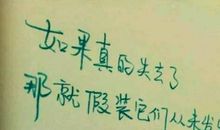 如果真的失去了
那就假装它们从未